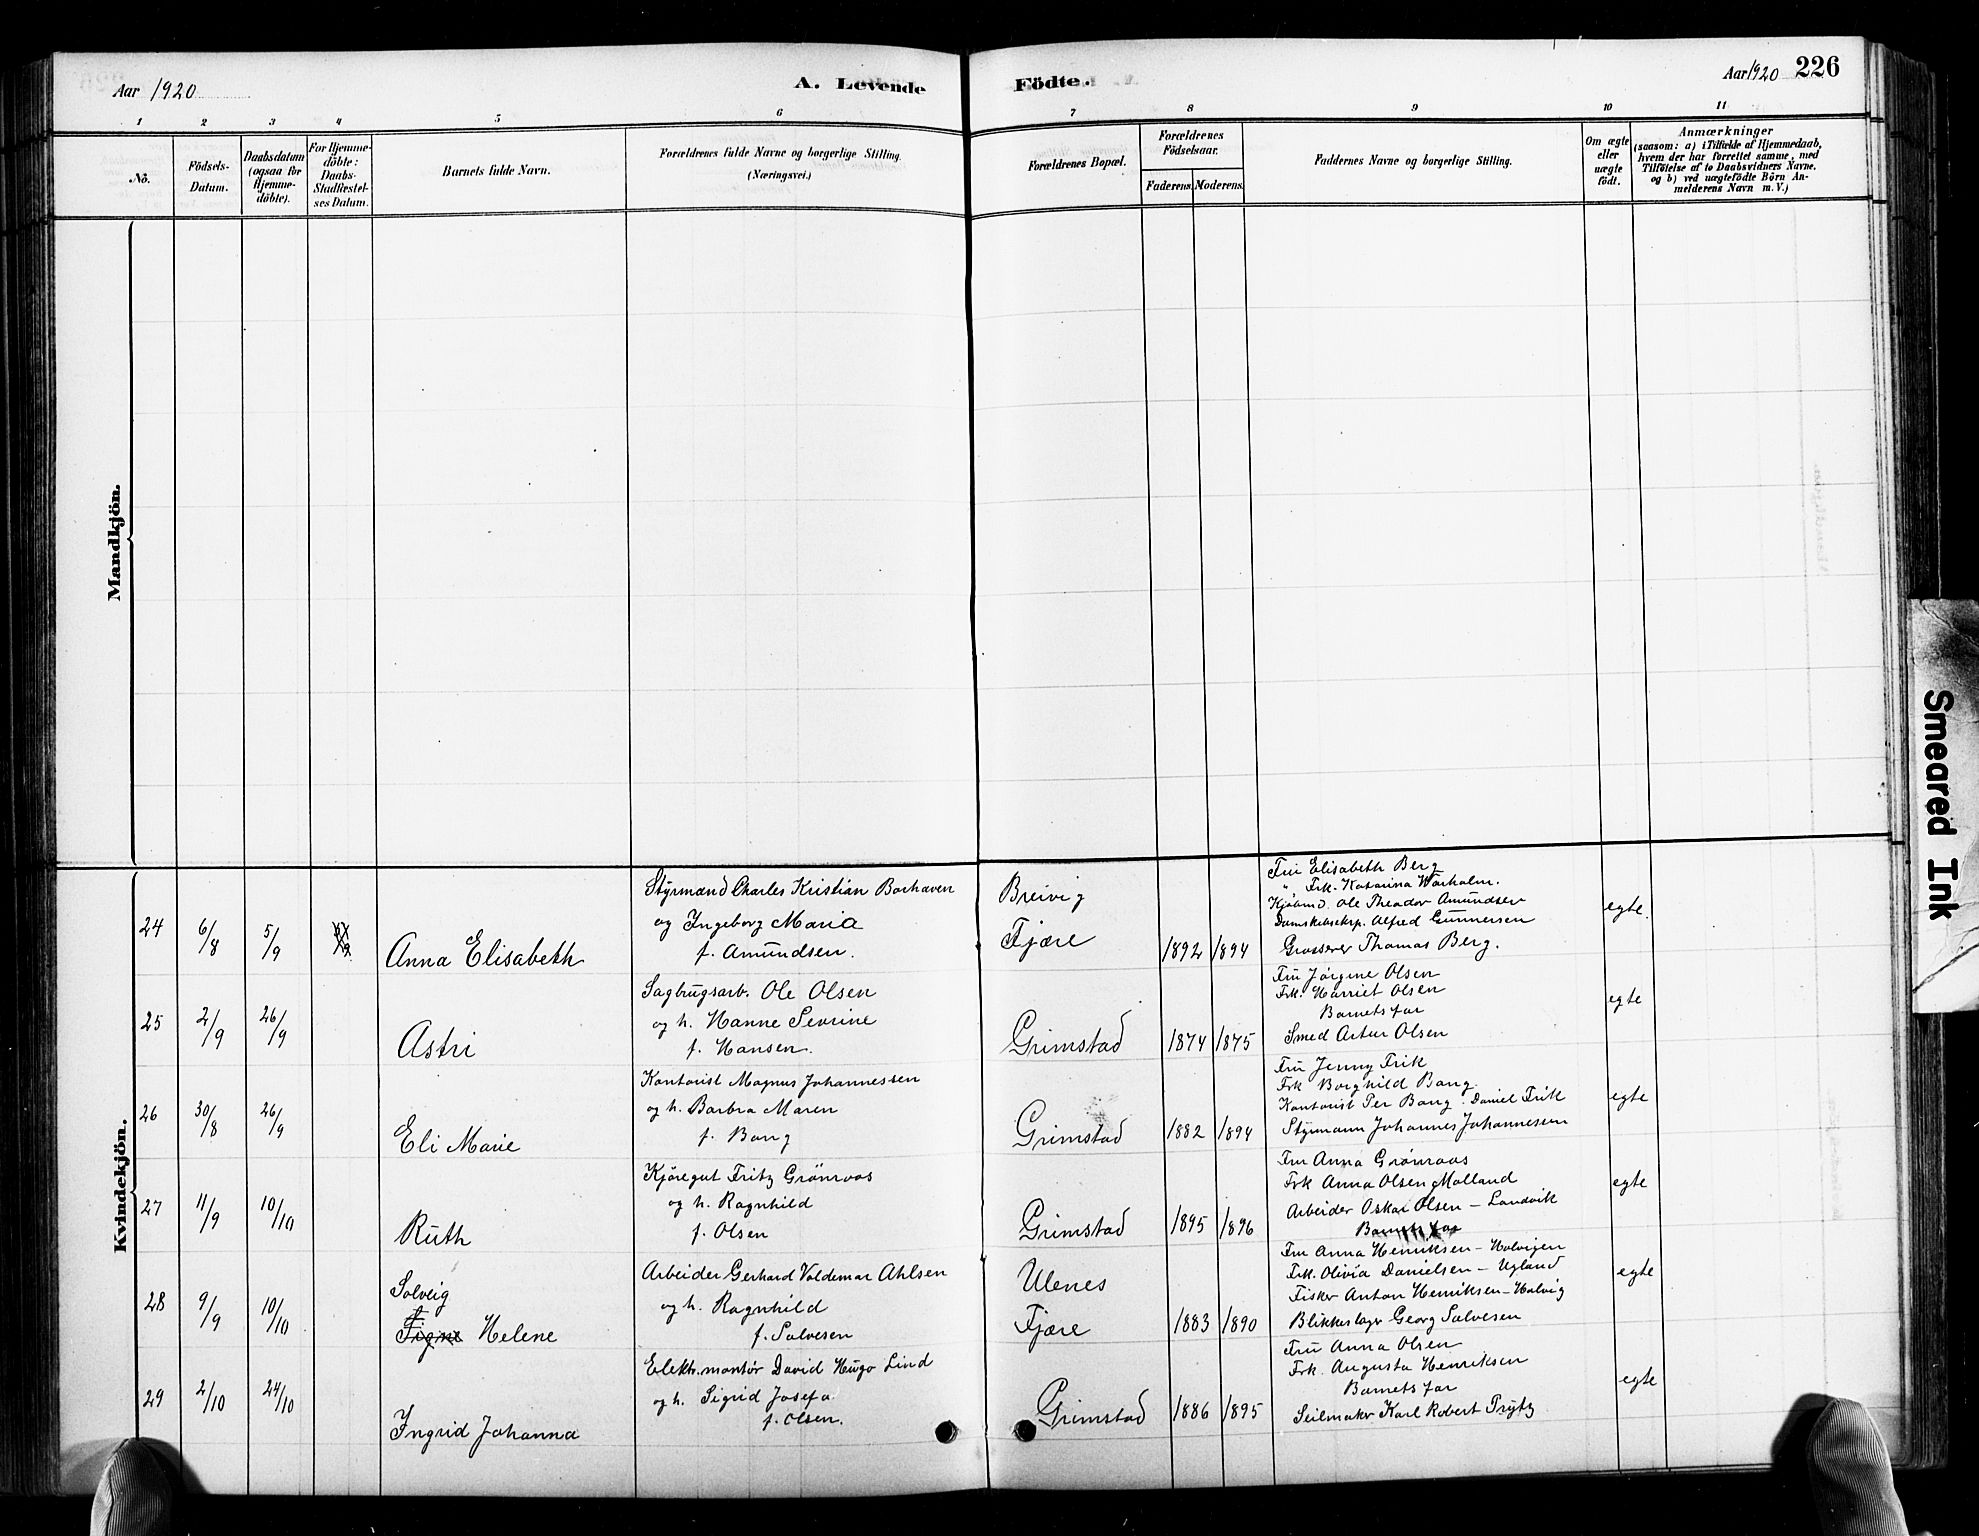 Aar 1920
A. Levende
Födte.
Aar 1920 226
1 2 3 4 5 6 7 8 9 10 11
No.
Födsels-
Datum.
Daabsdatum
(ogsaa för
Hjemme-
döbte).
For Hjemme-
döbte:
Daabs-
Stadfæstel-
ses Datum.
Barnets fulde Navn.
Forældrenes fulde Navne og borgerlige Stilling.
(Næringsvei.)
Forældrenes Bopæl.
Forældrenes
Födselsaar.
Faderens.
Moderens.
Faddernes Navne og borgerlige Stilling.
Om ægte
eller
uægte
födt.
Anmærkninger
(saasom: a) i Tilfælde af Hjemmedaab,
hvem der har forrettet samme, med
Tilföielse af to Daabsvidners Navne.
og b) ved uægtefödte Börn An-
melderens Navn m. V.)
Mandkjön.
Kvindekjön.
24 6/8 5/9
Anna Elisabeth
Styrmand Charles Kristian Barhaven
og Ingeborg Maria
f. Amundsen.
Breivig
Fjære
1892 1894
Fru Elisabeth Berg
" Frk. Katarina Warholm.
Kjøbmd. Ole Theodor Amundsen
Damskibseksp. Alfred Gunnersen
Grosserer Thomas Berg.
egte.
25 2/9 26/9
Astri
Sagbrugsarb. Ole Olsen
og h. Hanne Sevrine
f. Hansen.
Grimstad
1874 1875
Fru Jørgine Olsen
Frk. Harriet Olsen
Barnets far
Smed Artur Olsen
egte
26 30/8 26/9
Eli Marie
Kontorist Magnus Johannessen
og h. Barbra Maren
f. Bang
Grimstad
1882 1894
Fru Jenny Frik
Frk Borghild Bang.
Kontorist Per Bang. Daniel Frik
Styrmann Johannes Johannesen
egte
27 11/9 10/10
Ruth
Kjøregut Fritz Grønroos
og h. Ragnhild
f. Olsen
Grimstad
1895 1896
Fru Anna Grønroos
Frk Anna Olsen Molland
Arbeider Oskar Olsen – Landvik
Barnets far
egte
28 9/9 10/10
Solveig
Signe Helene
Arbeider Gerhard Valdemar Ahlsen
og h. Ragnhild
f. Salvesen
Ulenes
Fjære
1883 1890
Fru Anna Henriksen – Holvigen
Frk. Olivia Danielsen – Ugland
Fisker Anton Henriksen – Holvig
Blikkeslager Georg Salvesen
egte
29 2/10 24/10
Ingrid Johanna
Elektr. montør David Hugo Lind
og h. Sigrid Josefa
f. Olsen.
Grimstad
1886 1895
Fru Anna Olsen
Frk. Augusta Henriksen
Barnets far
Seilmaker Karl Robert Trytz
egte
Smeared Ink